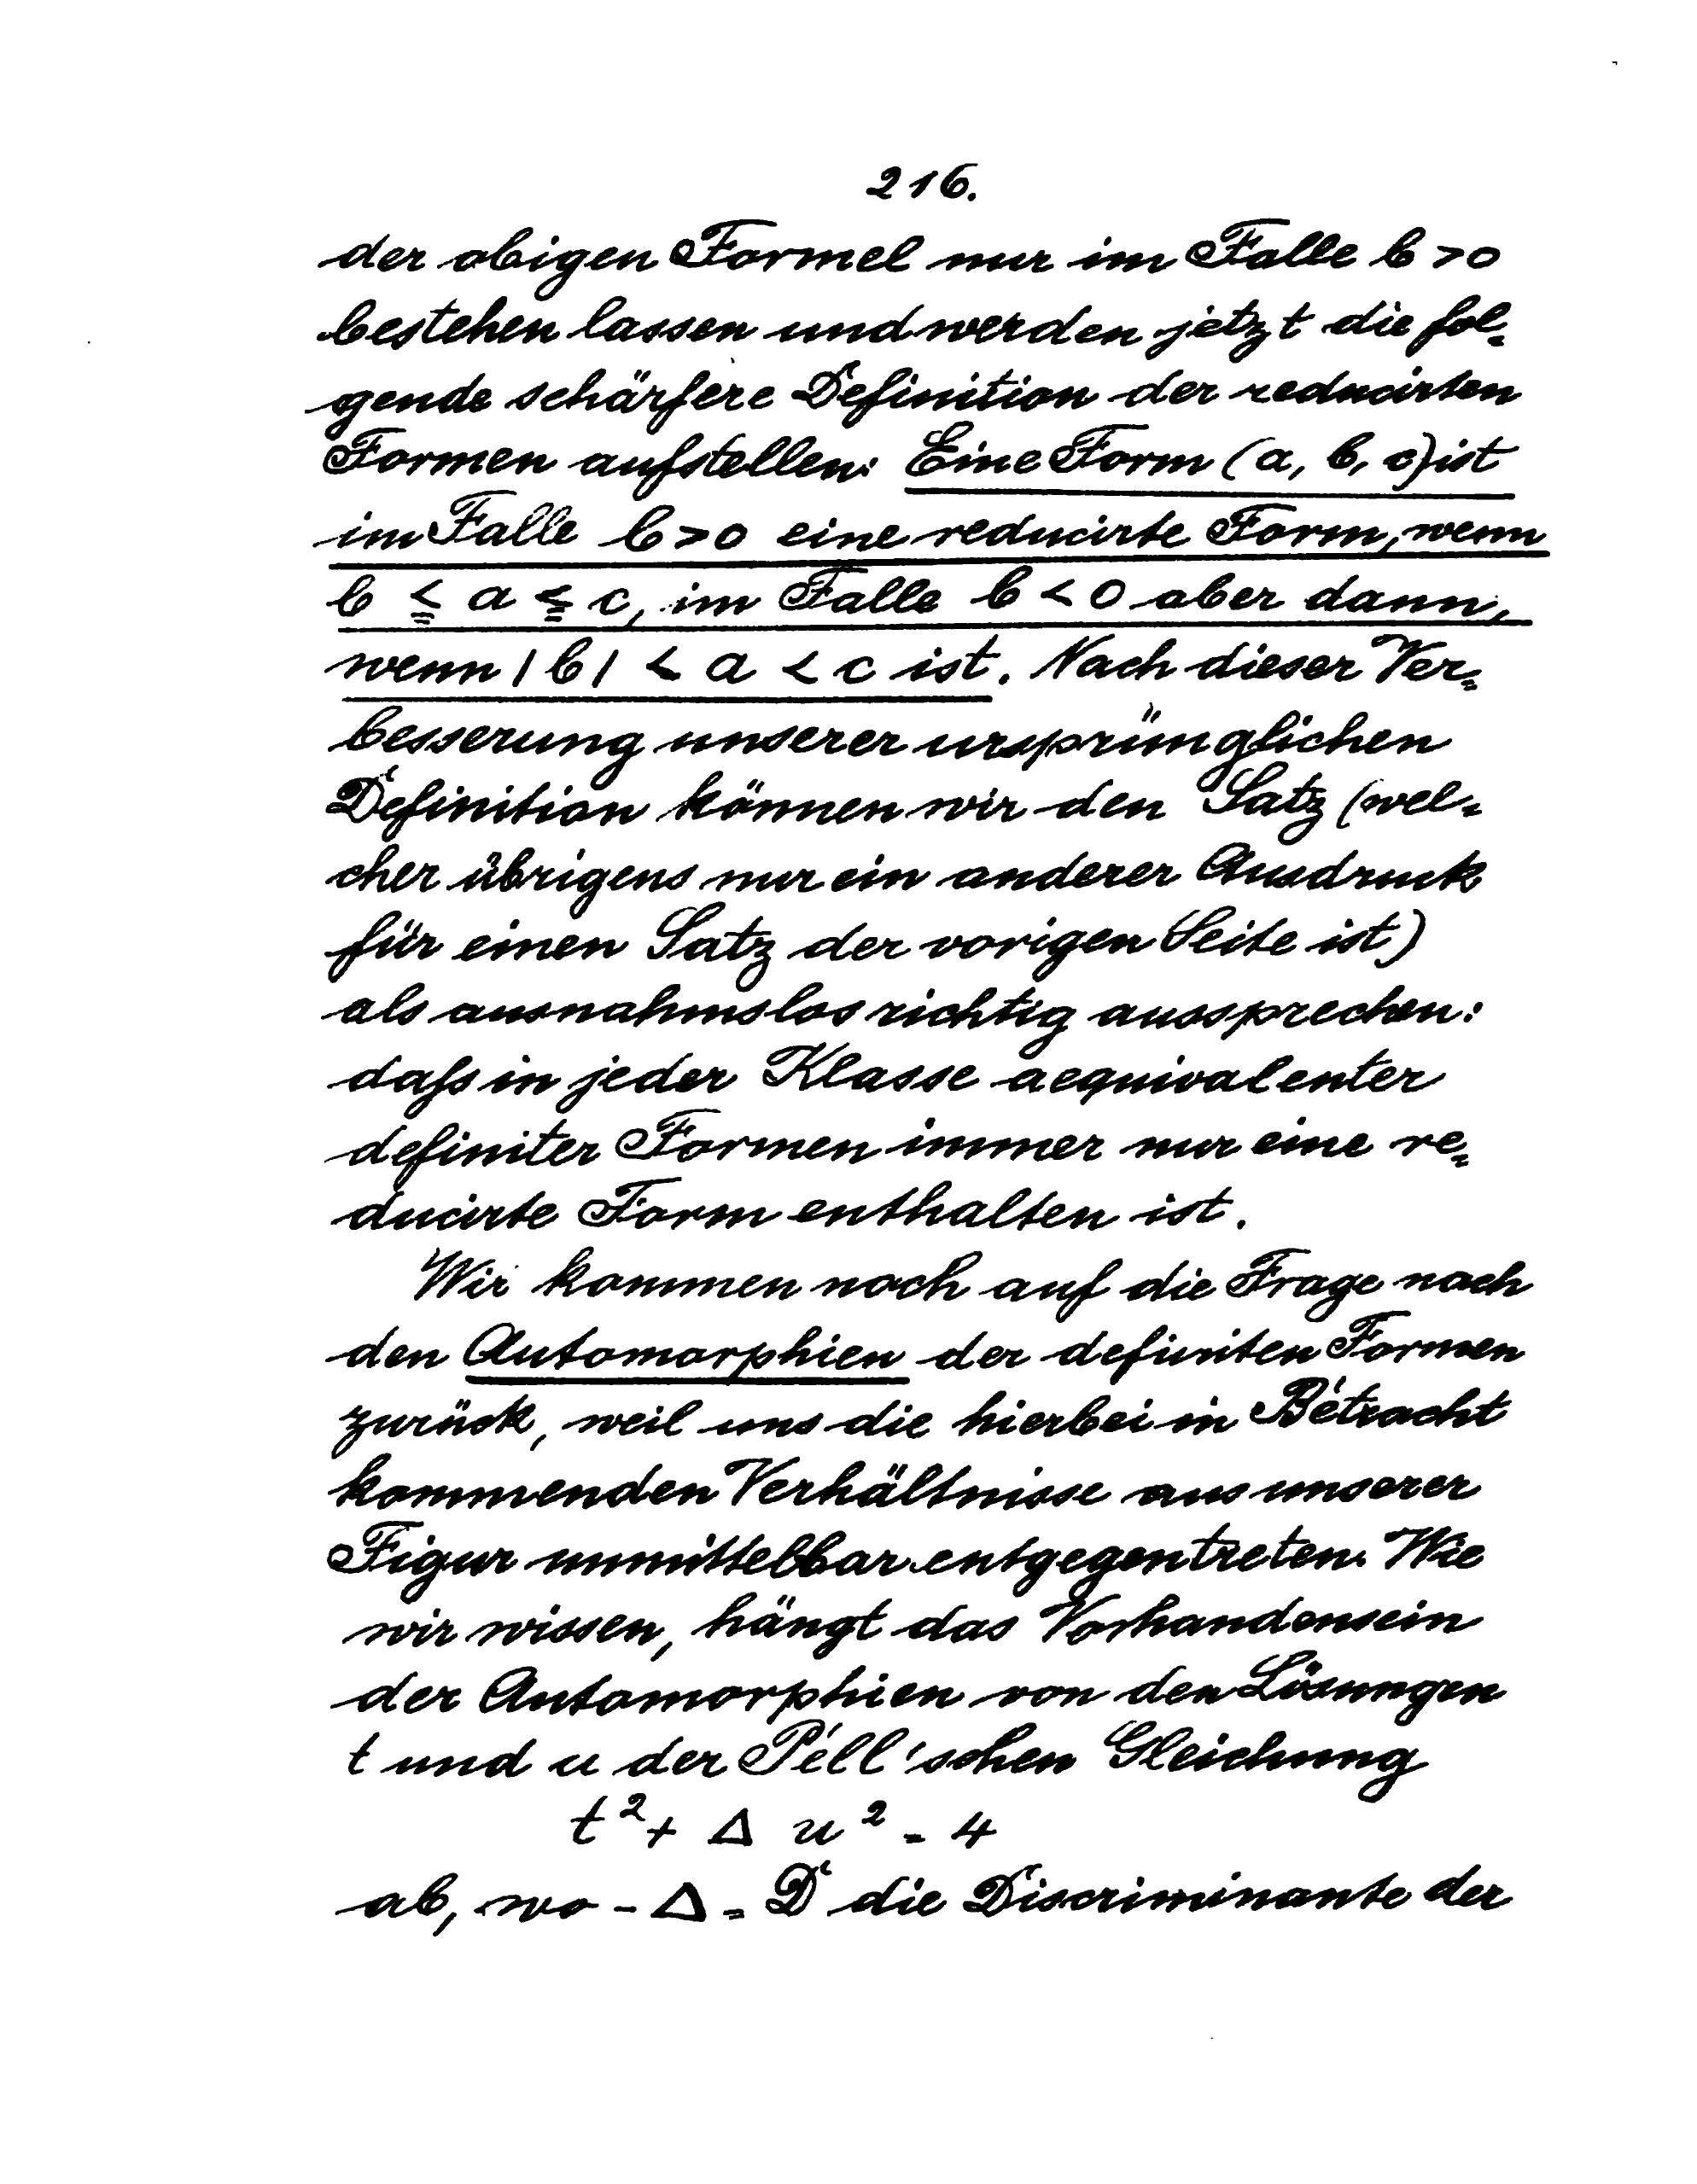 216.
der obigen Formel nur im Falle b > 0
bestehen lassen und werden jetzt die fol=
gende schärfere Definition der reducirten
Formen aufstellen: Eine Form (a, b, c) ist
im Falle b > 0 eine reducirte Form, wenn
b ≦ a ≦ c, im Falle b < 0 aber dann,
wenn |b| < a < c ist. Nach dieser Ver=
besserung unserer ursprünglichen
Definition können wir den Satz (wel=
cher übrigens nur ein anderer Ausdruck
für einen Satz der vorigen Seite ist)
als ausnahmslos richtig aussprechen:
daß in jeder Klasse aequivalenter
definiter Formen immer nur eine re=
ducirte Form enthalten ist.
Wir kommen noch auf die Frage nach
den Automorphien der definiten Formen
zurück, weil uns die hierbei in Betracht
kommenden Verhältnisse aus unserer
Figur unmittelbar entgegentreten. Wie
wir wissen, hängt das Vorhandensein
der Automorphien von den Lösungen
t und u der Pell'schen Gleichung
t² + Δ u² = 4
ab, wo - Δ = D die Discriminante der